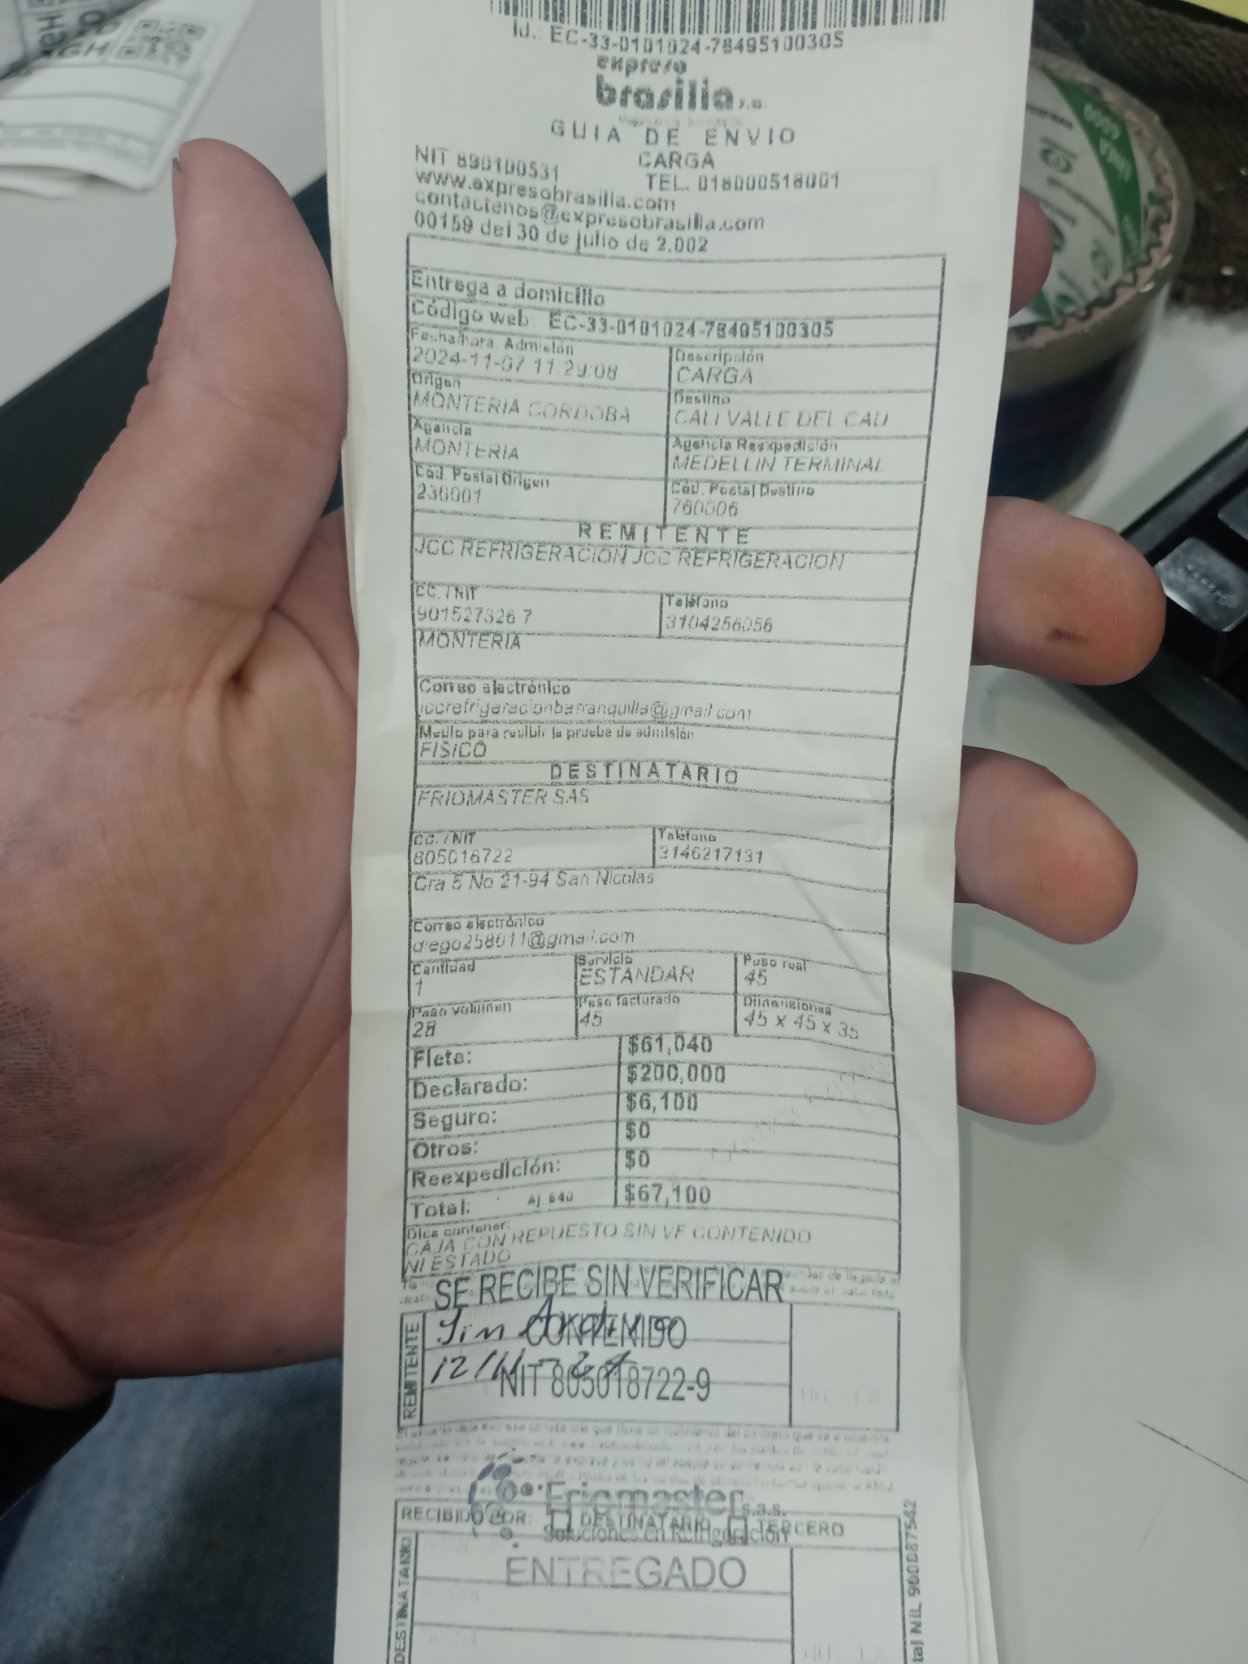 Id.: EC-33-0101024-78495100305
expreso
brasilia s.a.
GUIA DE ENVIO
CARGA
NIT 890100531
TEL. 018000518001
www.expresobrasilia.com
contactenos@expresobrasilia.com
00159 del 30 de julio de 2.002
Entrega a domicilio
Código web: EC-33-0101024-78495100305
Fecha/hora. Admisión
2024-11-07 11:29:08
Descripción
CARGA
Origen
MONTERIA CORDOBA
Destino
CALI VALLE DEL CAU
Agencia
MONTERIA
Agencia Reexpedición
MEDELLIN TERMINAL
Cód. Postal Origen
230001
Cód. Postal Destino
760006
REMITENTE
JCC REFRIGERACION JCC REFRIGERACION
CC. / NIT
901527326 7
Teléfono
3104256056
MONTERIA
Correo electrónico
jccrefrigeracionbarranquilla@gmail.com
Medio para recibir la prueba de admisión
FISICO
DESTINATARIO
FRIOMASTER SAS
CC. / NIT
805018722
Teléfono
3146217131
Cra 5 No 21-94 San Nicolas
Correo electrónico
diego258011@gmail.com
Cantidad
1
Servicio
ESTANDAR
Peso real
45
Peso volumen
28
Peso facturado
45
Dimensiones
45 x 45 x 35
Flete: $61,040
Declarado: $200,000
Seguro: $6,100
Otros: $0
Reexpedición: $0
Total: Aj. 640 $67,100
Dice contener:
CAJA CON REPUESTO SIN VF CONTENIDO
NI ESTADO
SE RECIBE SIN VERIFICAR
CONTENIDO
REMITENTE
12/11-24
NIT 805018722-9
Friomaster s.a.s.
RECIBIDO POR: DESTINATARIO TERCERO
Soluciones en Refrigeración
ENTREGADO
DESTINATARIO
NIL 900087542